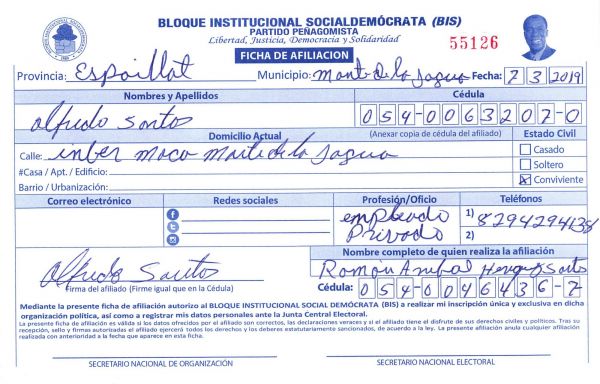 BLOQUE INSTITUCIONAL SOCIALDEMÓCRATA (BIS)
PARTIDO PEÑAGOMISTA
Libertad, Justicia, Democracia y Solidaridad
FICHA DE AFILIACION
55126
Provincia: Espaillat Municipio: Monte de la Jagua Fecha: 7 3 2019
Nombres y Apellidos Cédula
Alfredo Santos 054-0063207-0
Domicilio Actual (Anexar copia de cédula del afiliado) Estado Civil
Calle: inber moca Monte de la Jagua
Casado
#Casa / Apt. / Edificio: Soltero
Barrio / Urbanización: X Conviviente
Correo electrónico Redes sociales Profesión/Oficio Teléfonos
empleado 1) 8294294138
Privado 2)
Alfredo Santos
Firma del afiliado (Firme igual que en la Cédula)
Nombre completo de quien realiza la afiliación
Ramon Anibal Santos
Cédula: 054-0046436-7
Mediante la presente ficha de afiliación autorizo al BLOQUE INSTITUCIONAL SOCIAL DEMÓCRATA (BIS) a realizar mi inscripción única y exclusiva en dicha
organización política, así como a registrar mis datos personales ante la Junta Central Electoral.
La presente ficha de afiliación es válida si los datos ofrecidos por el afiliado son correctos, las declaraciones veraces y si el afiliado tiene el disfrute de sus derechos civiles y políticos. Tras su
recepción, sello y firmas autorizadas el afiliado ejercerá todos los derechos y los deberes estatutariamente sancionados, de acuerdo a la ley. La presente afiliación anula cualquier afiliación
realizada con anterioridad a la fecha que aparece en esta ficha.
SECRETARIO NACIONAL DE ORGANIZACIÓN SECRETARIO NACIONAL ELECTORAL